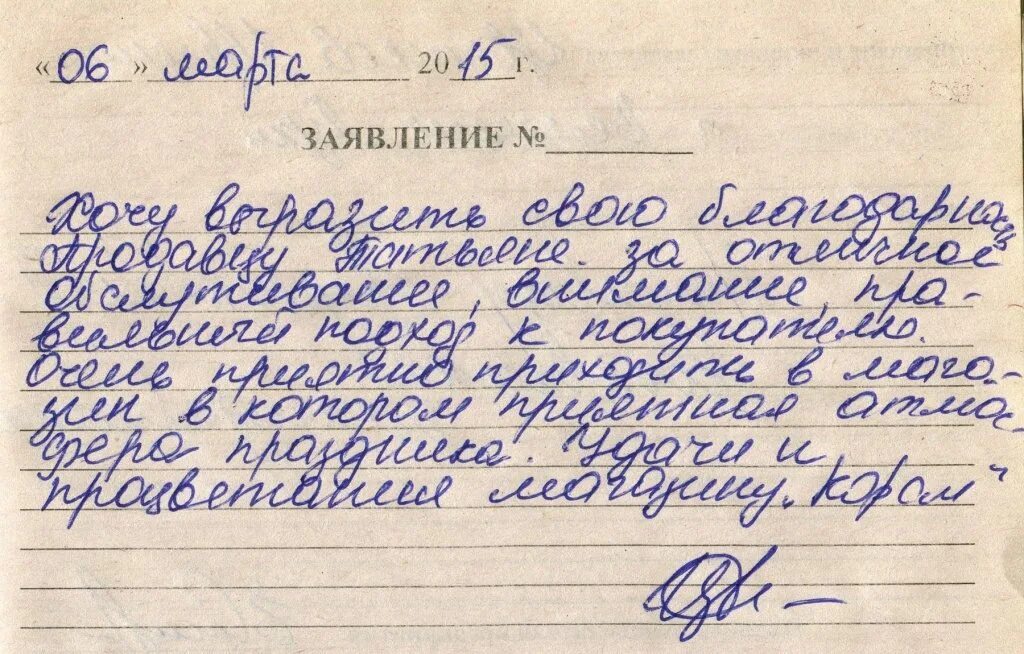 «06» марта 2015 г.
ЗАЯВЛЕНИЕ №
Хочу выразить свою благодарность
Продавцу Татьяне. за отличное
обслуживание, внимание, пра-
вильный подход к покупателю.
Очень приятно приходить в мага-
зин в котором приятная атмо-
сфера праздника. Удачи и
процветания магазину